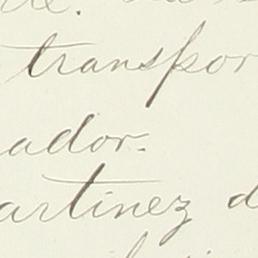 transpor
ador.
artinez d